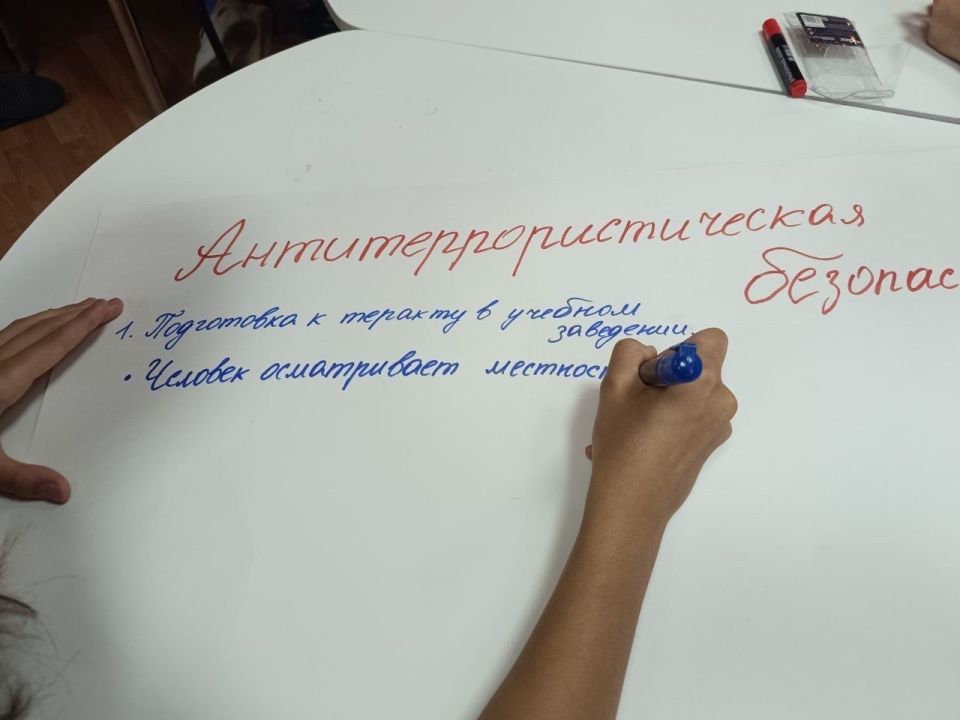 Антитеррористическая
безопас
1. Подготовка к теракту в учебном
заведении.
• Человек осматривает местност